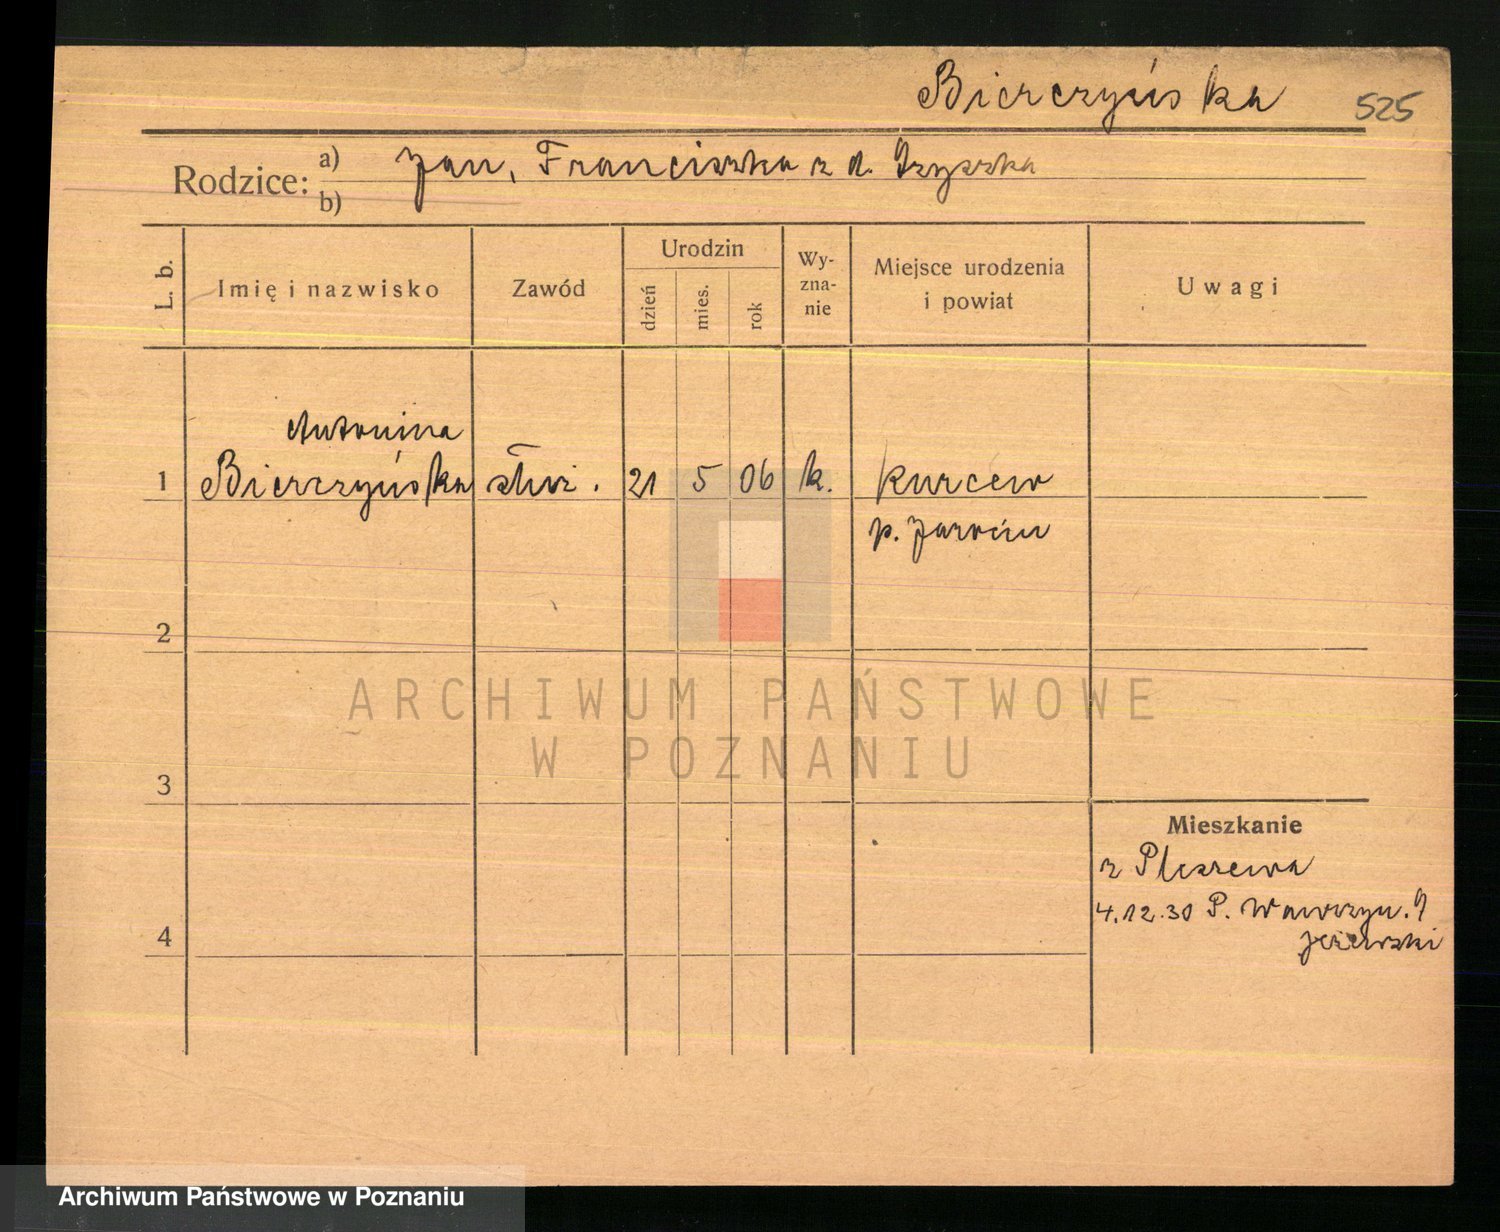 Bierczyńska 525
Rodzice: a) Jan, Franciszka z d.
b)
L. b. Imię i nazwisko Zawód Urodzin dzień mies. rok Wy-zna-nie Miejsce urodzenia i powiat Uwagi
Antonina
1 Bierczyńska służ. 21 5 06 k. Kurcew
p. Jarocin
2
ARCHIWUM PAŃSTWOWE
W POZNANIU
3
Mieszkanie
z Pleszewa
4.12.30 P. Wawrzyn. 9
4 Jeżewski
Archiwum Państwowe w Poznaniu